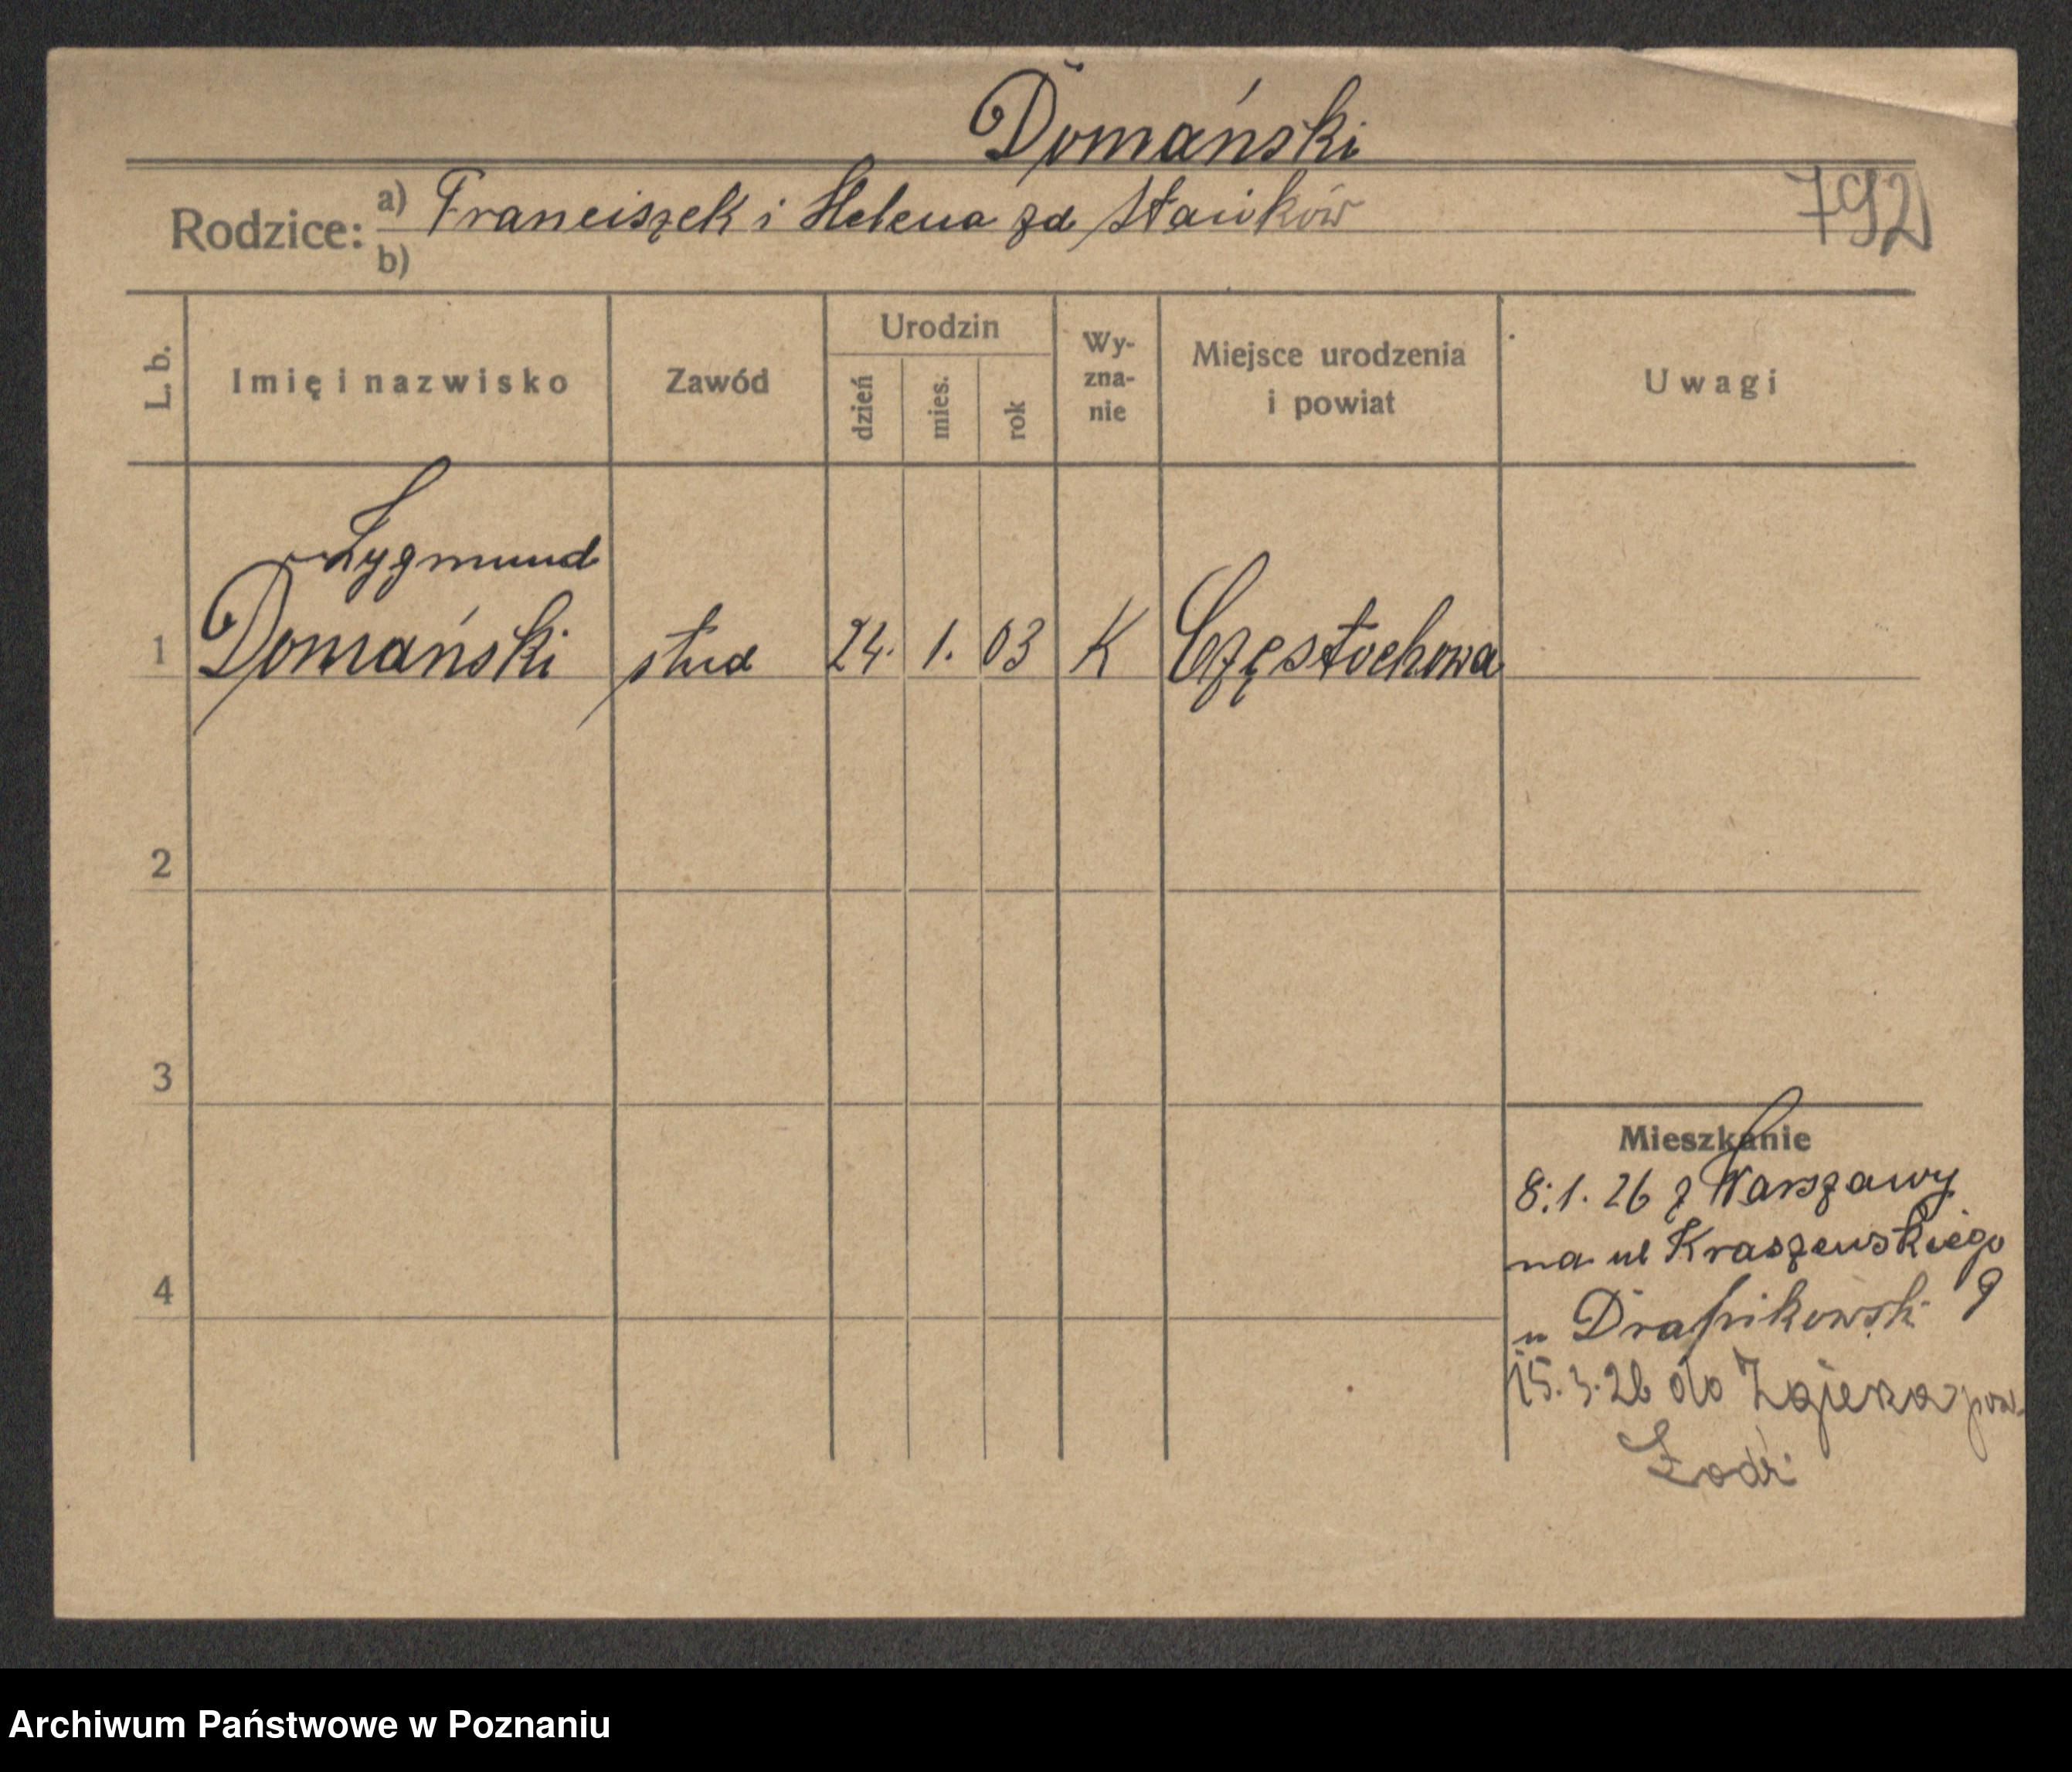 Domański
Rodzice: a) Franciszek i Helena zd
b)
792
L. b.
Imię i nazwisko
Zawód
Urodzin
dzień
mies.
rok
Wy-
zna-
nie
Miejsce urodzenia
i powiat
Uwagi
Zygmund
1 Domański stud 24. 1. 03 K Częstochowa
2
3
4
Mieszkanie
8.1.26 z Warszawy
na ul Kraszewskiego
9
u
15.3.26 do Zgierza pow.
Łódź
Archiwum Państwowe w Poznaniu